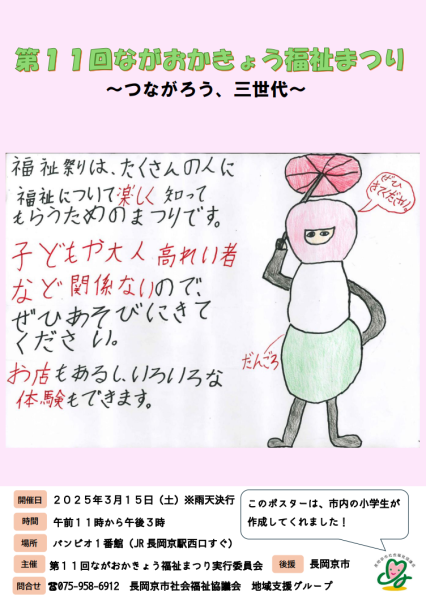 第11回ながおかきょう福祉まつり
～つながろう、三世代～
福祉祭りは、たくさんの人に
福祉について楽しく知って
もらうためのまつりです。
子どもや大人高れい者
など関係ないので、
ぜひあそびにきて
ください。
お店もあるし、いろいろな
体験もできます。
ぜひ
きてください
だんごろ
開催日 2025年3月15日（土）※雨天決行
時間 午前11時から午後3時
場所 バンビオ1番館（JR長岡京駅西口すぐ）
主催 第11回ながおかきょう福祉まつり実行委員会 後援 長岡京市
問合せ ☎075-958-6912 長岡京市社会福祉協議会 地域支援グループ
このポスターは、市内の小学生が
作成してくれました！